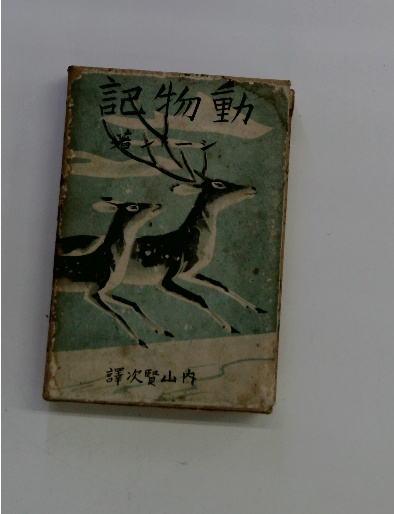 動物記
シートン著
内山賢次譯